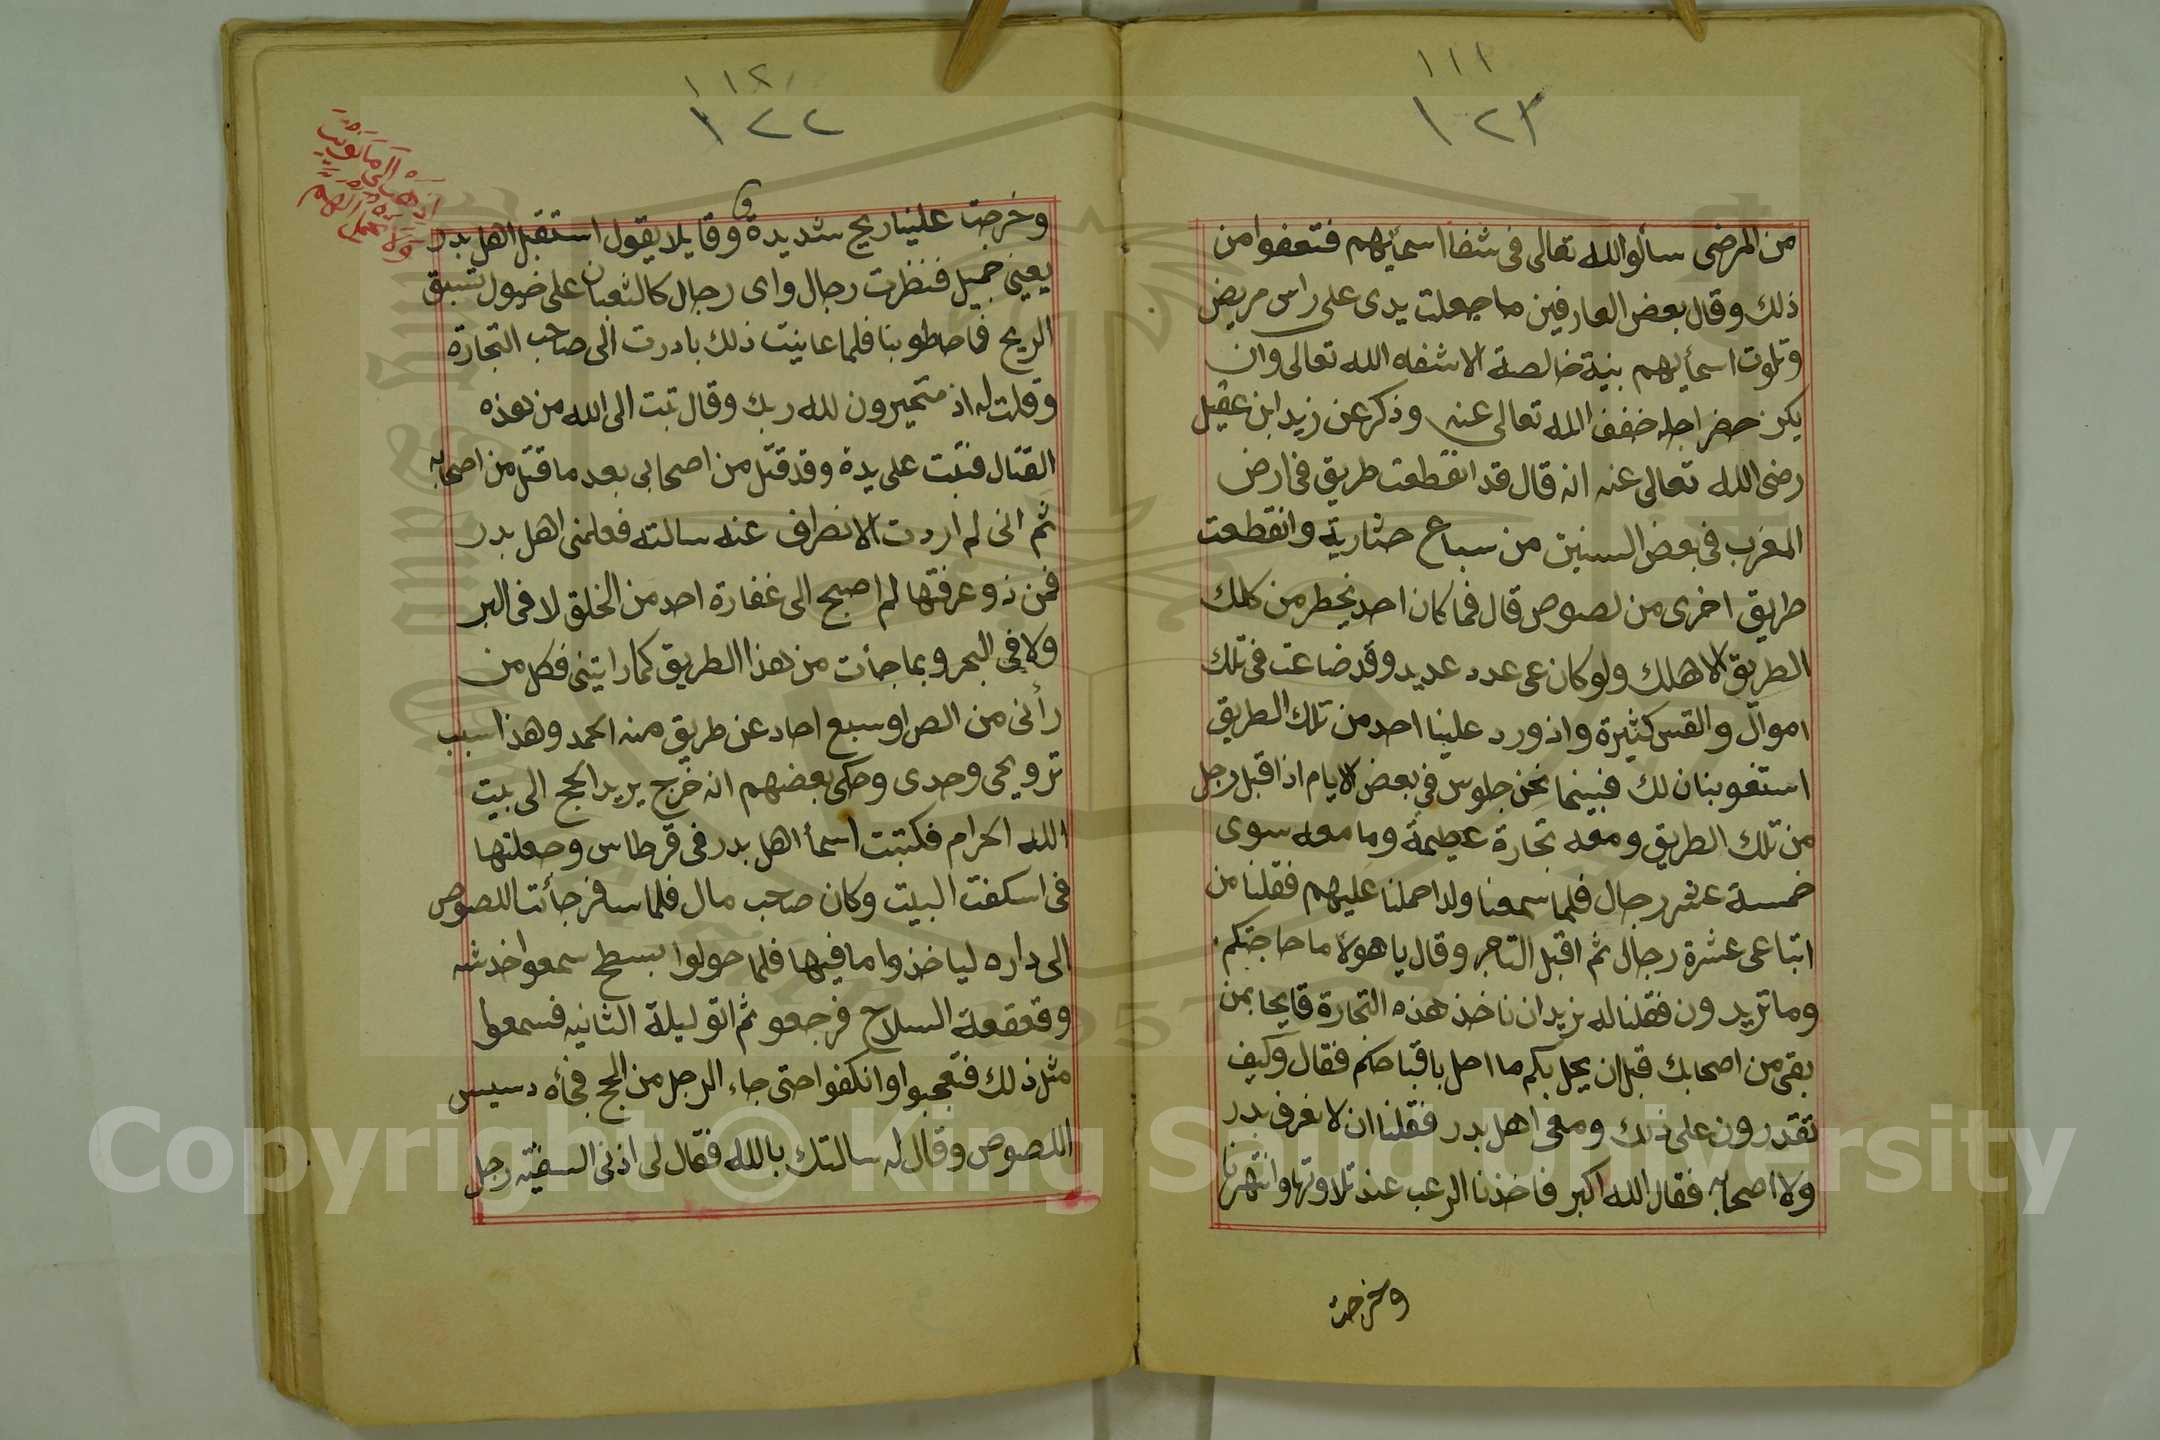 ١١١
١٢٣
من المرضى سألوا الله تعالى فى شفاا اسمأيهم فتعفوا من
ذلك وقال بعض العارفين ما جعلت يدى على راس مريض
وتلوت اسمأيهم بنية خالصة الا شفاه الله تعالى وان
يكن حضر اجله خفف الله تعالى عنه وذكر عن زيد ابن عقيل
رضى الله تعالى عنه انه قال قد انقطعت طريق فى ارض
المغرب فى بعض السنين من سباع وانقطعت
طريق اخرى من لصوص قال فما كان احد يخطر من كلك
الطريق الا هلك ولو كان عى عدد عديد وقد ضاعت فى تلك
اموال والقس كثيرة واذ ورد علينا احد من تلك الطريق
فبينما نحن جلوس فى بعض الايام اذا قبل رجل
من تلك الطريق ومعه تجارة عظيمة وما معه سوى
خمسة عشر رجال فلما سمعنا ولدا حملنا عليهم فقلنا من
اتباعى عشرة رجال ثم اقبل التاجر وقال يا هولا ما حاجتكم
وما تريدون فقلنا له نريد ان ناخذ هذه التجارة بمن
بقى من اصحابك قبل ان يحل بكم ما احل باقباحكم فقال وكيف
تقدرون على ذلك ومعى اهل بدر فقلنا ان لا نعرف بدر
ولا اصحابه فقال الله اكبر فاخذنا الرعب عند تلاوتها وانتهرنا
وخرجت
١١٢
١٢٢
وخرجت علينا ريح شديدة وقايلا يقول استقبل اهل بدر
يعينى جميل فنظرت رجال واى رجال كالثعبان على خيول تسبق
الريح فاحطو بنا فلما عاينت ذلك بادرت الى صاحب التجارة
وقلت له اذ متحيرون لله ربك وقال تبت الى الله من هذه
القتال فتبت على يدة وقد قتل من اصحابى بعد ما قتل من اصحابه
ثم انى لم اردت الانصراف عنه سالته فعلمنى اهل بدر
فمن ذو عرفتها لم اصبح الى غفارة احد من الخلق لا فى البر
ولا فى البحر وبما جأت من هذا الطريق كما رايتنى فكل من
رأنى من الص او سبع احاد عن طريق منه الحمد وهذا سبب
ترويحى وحدى وحكى بعضهم انه خرج يريد الحج الى بيت
الله الحرام فكتبت اسمأ اهل بدر فى قرطاس وجعلتها
فى اسكفت البيت وكان صاحب مال فلما سافر جأئت اللصوص
الى داره لياخذوا ما فيها فلما حولوا بسطح سمعوا خدشه
وقعقعة السلاح فرجعو ثم اتو ليلة الثانيه فسمعوا
مثل ذلك فتعجبوا وانكفوا حتى جاء الرجل من الحج فجأه دسيس
اللصوص وقال له سالتك بالله فقال لى اذنى السفيته رجل